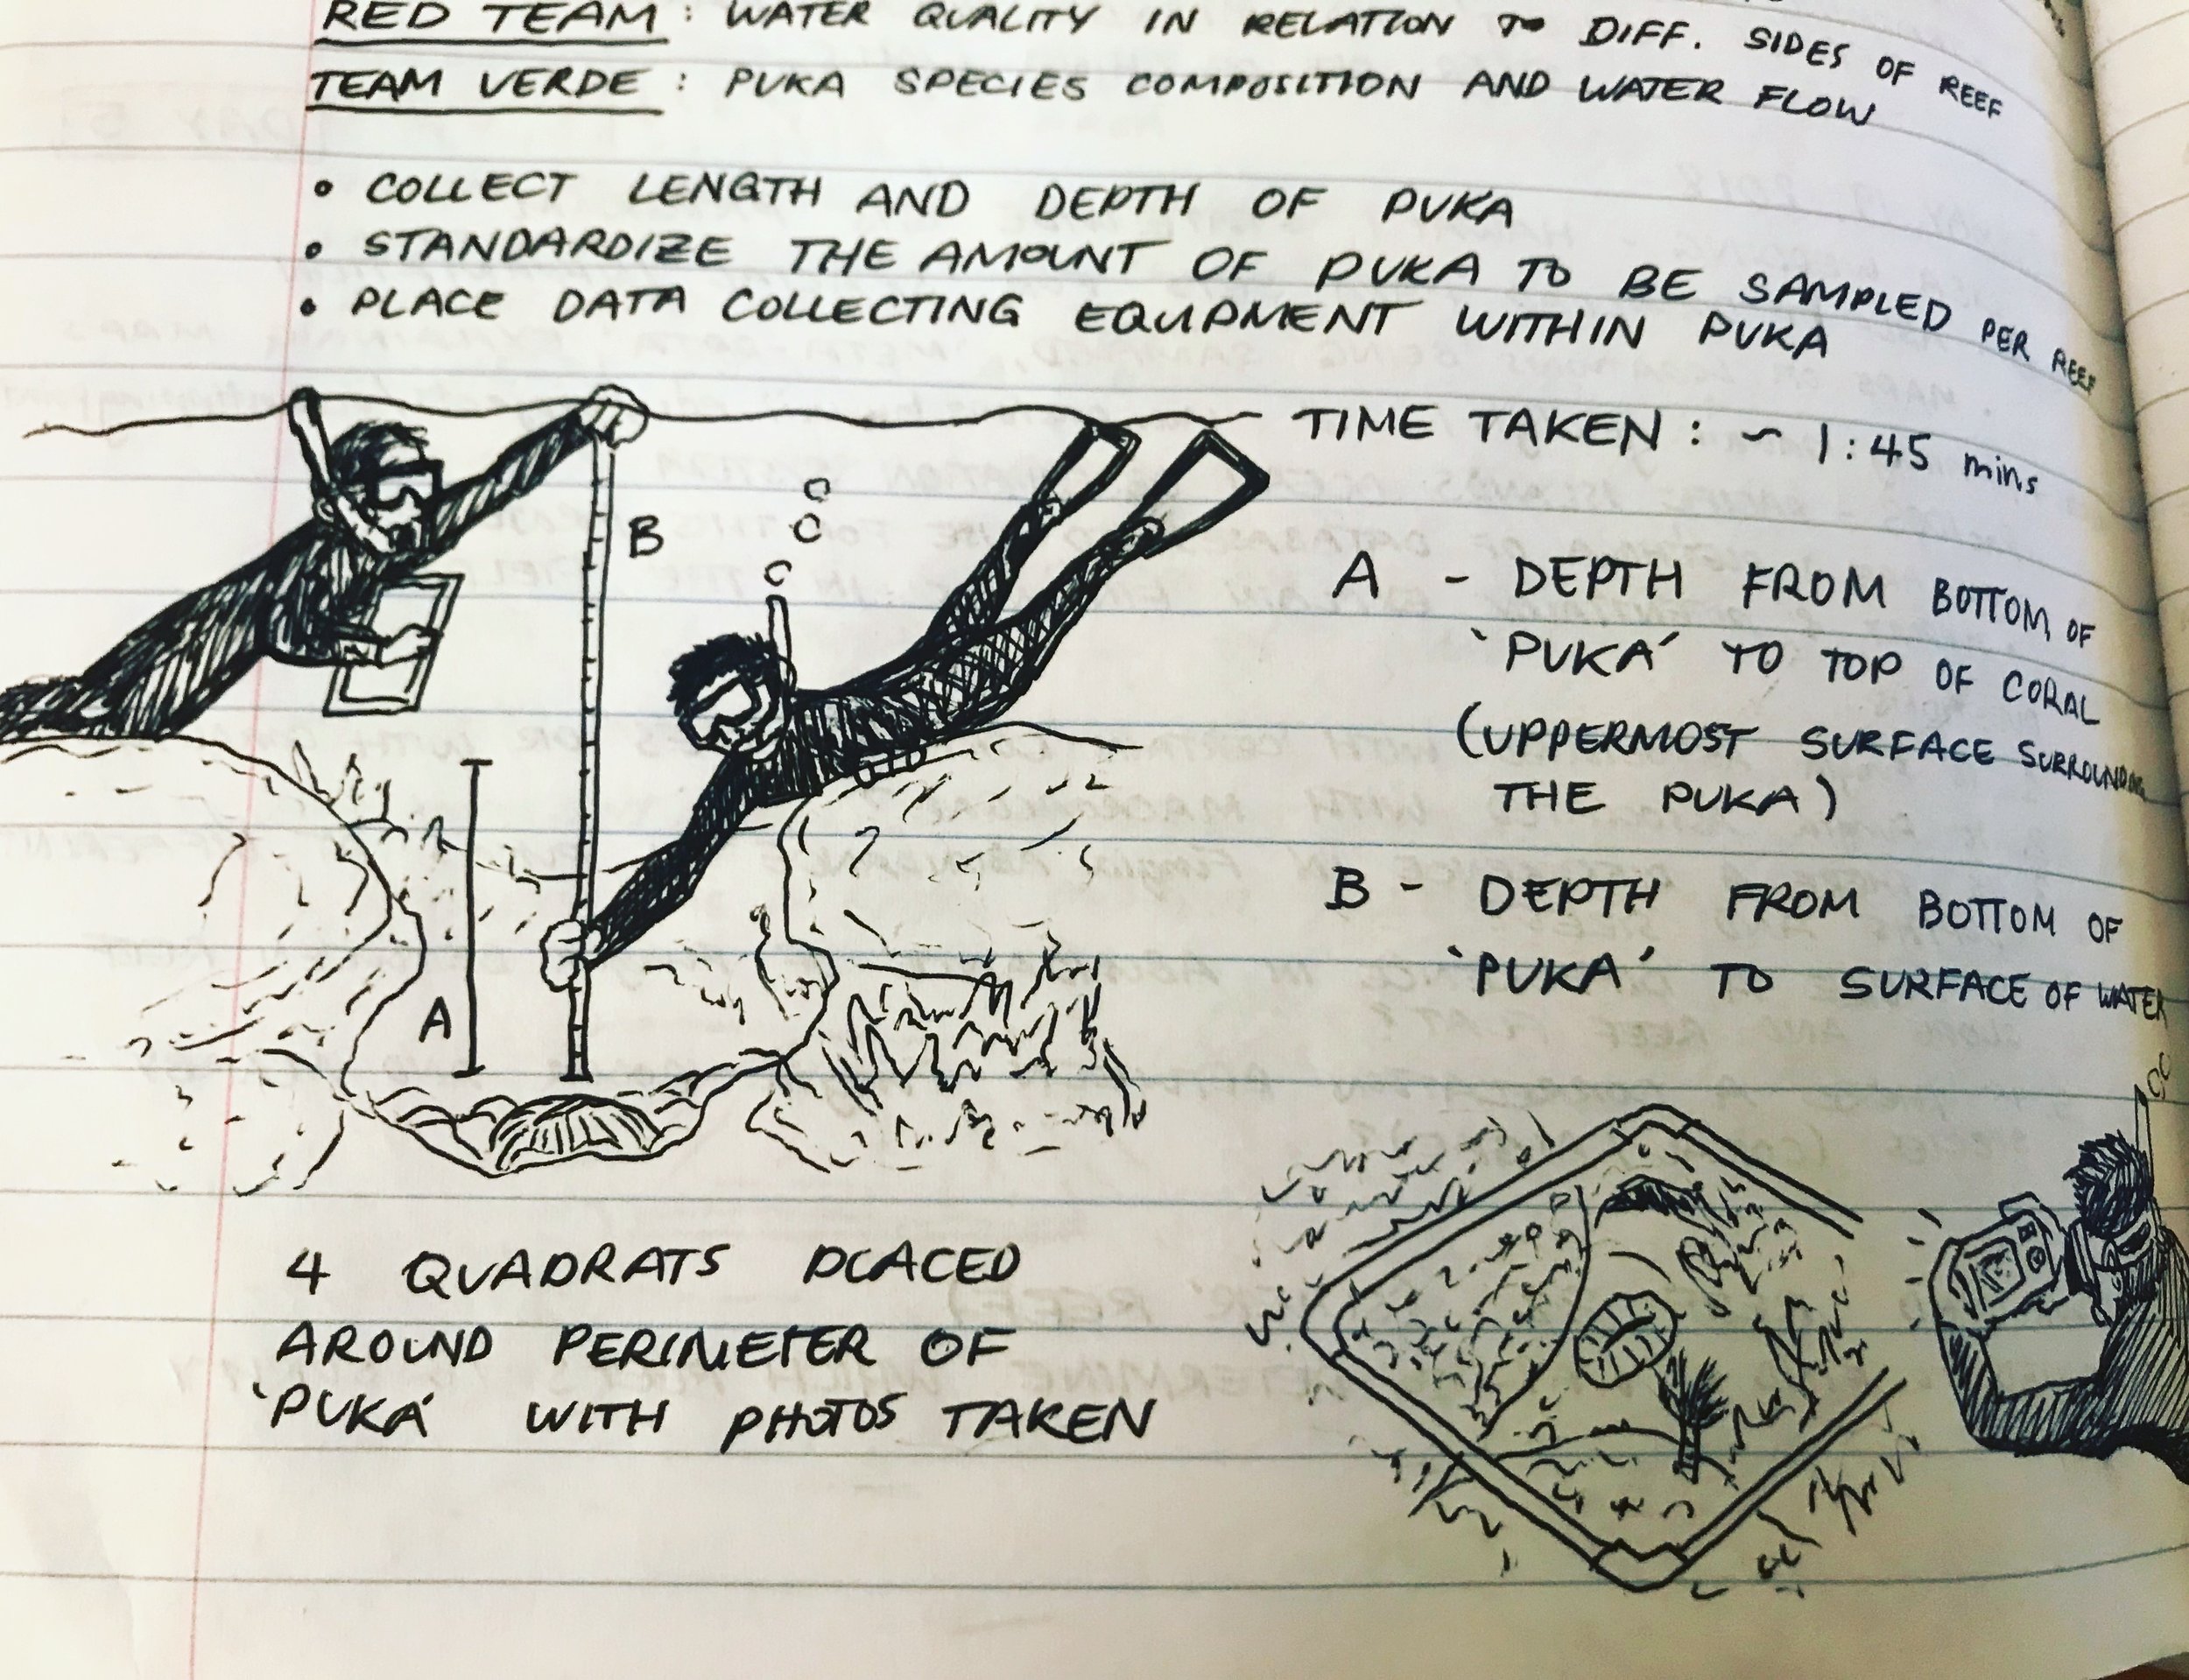 RED TEAM : WATER QUALITY IN RELATION TO DIFF. SIDES OF REEF
TEAM VERDE : PUKA SPECIES COMPOSITION AND WATER FLOW
• COLLECT LENGTH AND DEPTH OF PUKA
• STANDARDIZE THE AMOUNT OF PUKA TO BE SAMPLED PER REEF
• PLACE DATA COLLECTING EQUIPMENT WITHIN PUKA
TIME TAKEN : ~ 1:45 mins
B
A - DEPTH FROM BOTTOM OF
'PUKA' TO TOP OF CORAL
(UPPERMOST SURFACE SURROUNDING
THE PUKA)
B - DEPTH FROM BOTTOM OF
'PUKA' TO SURFACE OF WATER
A
4 QUADRATS PLACED
AROUND PERIMETER OF
'PUKA' WITH PHOTOS TAKEN